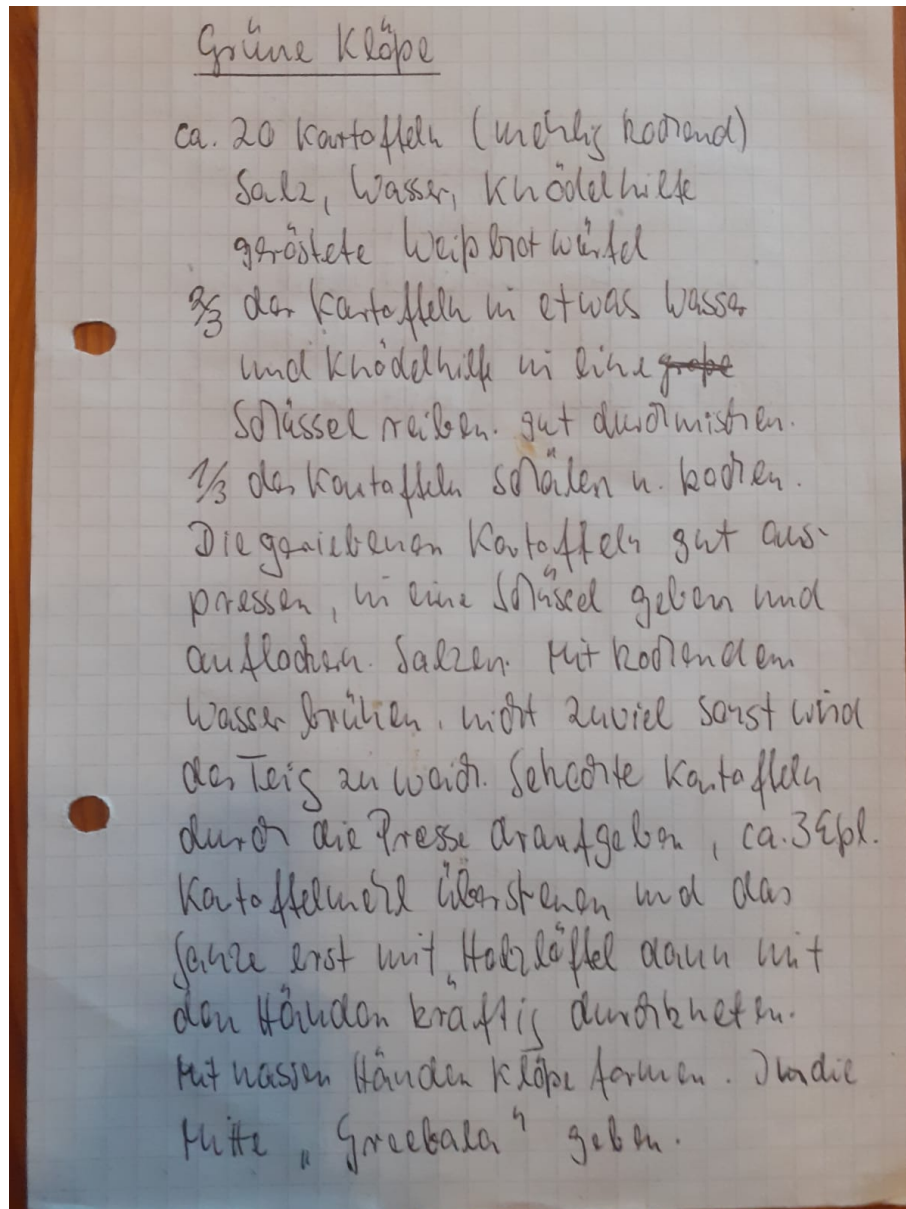 Grüne Klöße
ca. 20 Kartoffeln (mehlig kochend)
Salz, Wasser, Knödelhilfe
geröstete Weißbrotwürfel
2/3 der Kartoffeln in etwas Wasser
und Knödelhilfe in eine große
Schüssel reiben. gut durchmischen.
1/3 der Kartoffeln schälen u. kochen.
Die geriebenen Kartoffeln gut aus-
pressen, in eine Schüssel geben und
auflockern. Salzen. Mit kochendem
Wasser brühen, nicht zuviel sonst wird
der Teig zu weich. Gekochte Kartoffeln
durch die Presse draufgeben, ca. 3 Eßl.
Kartoffelmehl überstreuen und das
Ganze erst mit Holzlöffel dann mit
den Händen kräftig durchkneten.
Mit nassen Händen Klöße formen. In die
Mitte „Greebala" geben.